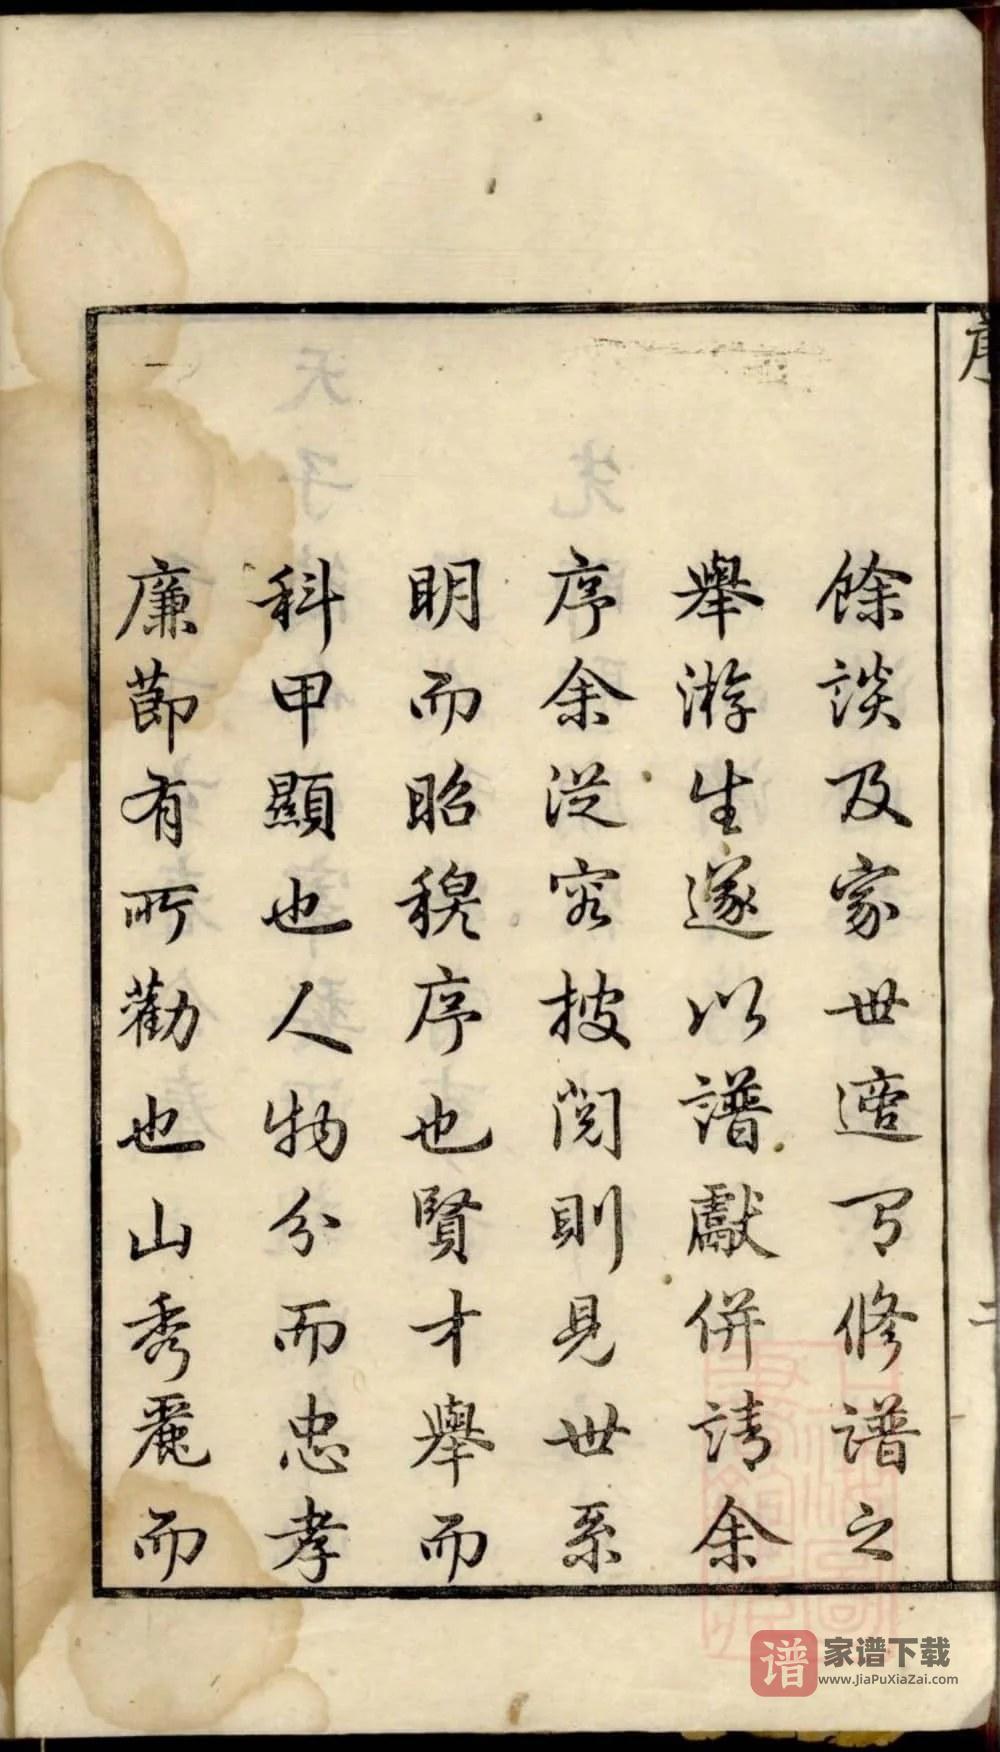 餘談及家世適有修譜之
舉游生遂以譜獻併請余
序余從容披閱則見世系
明而昭穆序也賢才舉而
科甲顯也人物分而忠孝
廉節有所勸也山秀麗而
序
二
谱 家谱下载
www.JiaPuXiaZai.com